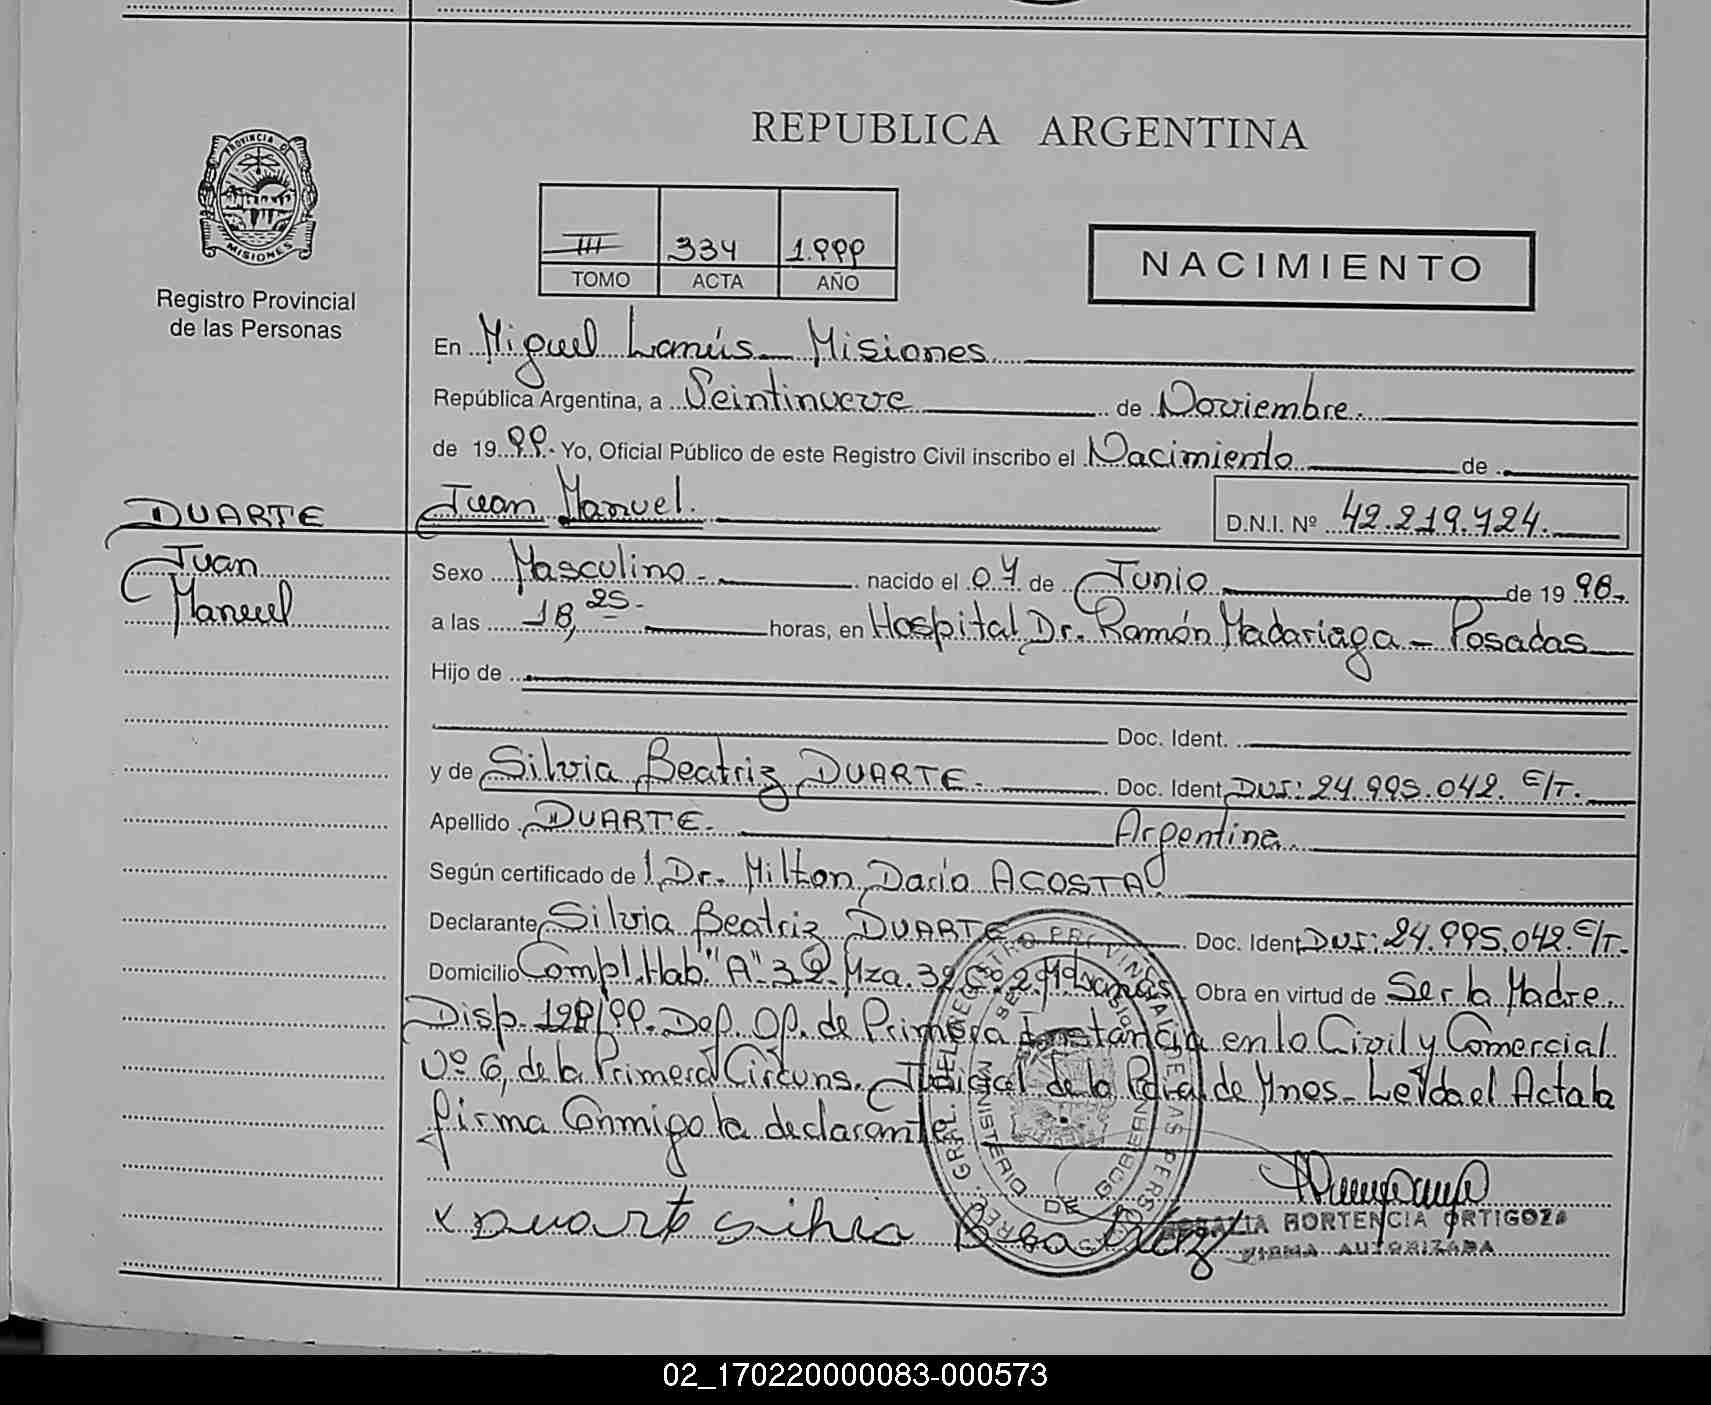 REPUBLICA ARGENTINA
PROVINCIA DE MISIONES
Registro Provincial
de las Personas
III 334 1.999
TOMO ACTA AÑO
NACIMIENTO
En Miguel Lanús - Misiones
República Argentina, a Veintinueve de Noviembre.
de 19 99.- Yo, Oficial Público de este Registro Civil inscribo el Nacimiento de
DUARTE
Juan
Manuel
Juan Manuel.
D.N.I. Nº 42.219.724.
Sexo Masculino.- nacido el 07 de Junio de 19 98.-
a las 18,25.- horas, en Hospital Dr. Ramón Madariaga - Posadas
Hijo de
Doc. Ident.
y de Silvia Beatriz DUARTE.- Doc. Ident. DNI: 24.995.042. E/T.
Apellido DUARTE.- Argentina.
Según certificado de Dr. Milton Darío ACOSTA
Declarante Silvia Beatriz DUARTE Doc. Ident. DNI: 24.995.042. E/T.-
Domicilio Compl. Hab. "A" 32 Mza. 32 Cº 2 Mº Lanús Obra en virtud de Ser la Madre
Disp. 199/99. Def. Of. de Primera Instancia en lo Civil y Comercial
Nº 6, de la Primera Circuns. Judicial de la Pcia. de Mnes.- Leída el Acta la
firma Conmigo la declarante
x Duarte silvia Beatriz
HORTENCIA ORTIGOZA
FIRMA AUTORIZADA
02_170220000083-000573